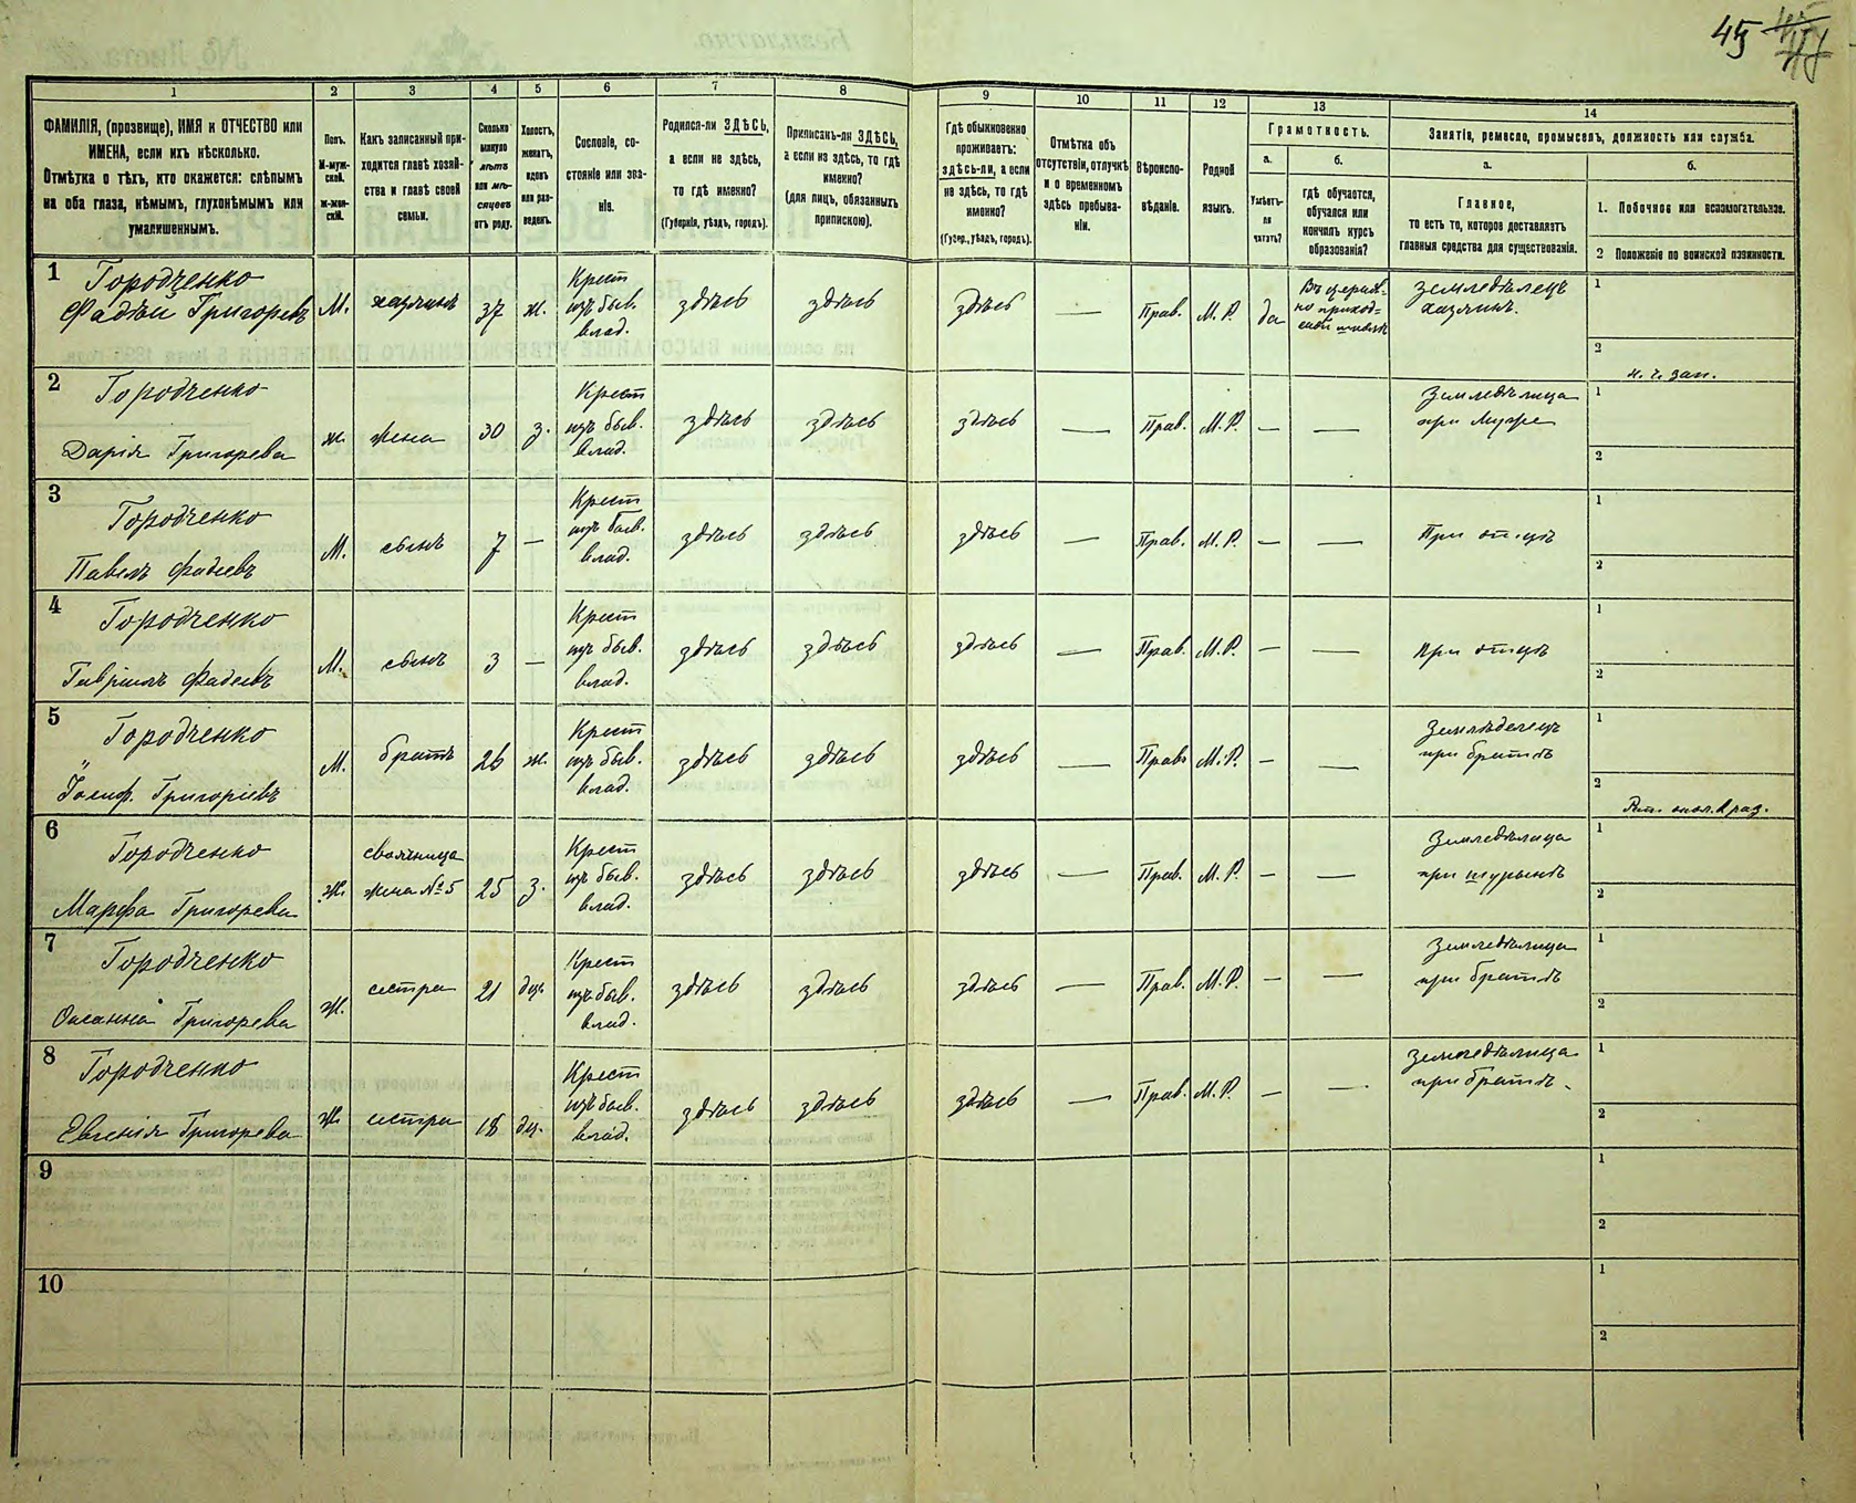 45
1
2
3
4
5
6
7
8
9
10
11
12
13
14
ФАМИЛІЯ, (прозвище), ИМЯ и ОТЧЕСТВО или
ИМЕНА, если ихъ нѣсколько.
Отмѣтка о тѣхъ, кто окажется: слѣпымъ
на оба глаза, нѣмымъ, глухонѣмымъ или
умалишеннымъ.
Полъ.
М-муж-
ской.
ж-жен-
скій.
Какъ записанный при-
ходится главѣ хозяй-
ства и главѣ своей
семьи.
Сколько
минуло
лѣтъ
или мѣ-
сяцевъ
отъ роду.
Холостъ,
женатъ,
вдовъ
или раз-
веденъ.
Сословіе, со-
стояніе или зва-
ніе.
Родился-ли ЗДѢСЬ,
а если не здѣсь,
то гдѣ именно?
(Губернія, уѣздъ, городъ).
Приписанъ-ли ЗДѢСЬ,
а если не здѣсь, то гдѣ
именно?
(для лицъ, обязанныхъ
припискою).
Гдѣ обыкновенно
проживаетъ:
здѣсь-ли, а если
не здѣсь, то гдѣ
именно?
(Губер., уѣздъ, городъ).
Отмѣтка объ
отсутствіи, отлучкѣ
и о временномъ
здѣсь пребыва-
ніи.
Вѣроиспо-
вѣданіе.
Родной
языкъ.
Грамотность.
а.
Умѣетъ-
ли
читать?
б.
гдѣ обучается,
обучался или
кончилъ курсъ
образованія?
Занятіе, ремесло, промыселъ, должность или служба.
а.
Главное,
то есть то, которое доставляетъ
главныя средства для существованія.
б.
1. Побочное или вспомогательное.
2 Положеніе по воинской повинности.
1
Городченко
Фадѣй Григорьевъ
М.
хазяинъ
37
ж.
Крест
изъ быв.
влад.
здѣсь
здѣсь
здѣсь
—
Прав.
М. Р.
да
Въ церков-
но приход-
ской школѣ
земледѣлецъ
хазяинъ.
1
2
н. ч. зап.
2
Городченко
Дарія Григорева
ж.
жена
30
з.
Крест
изъ быв.
влад.
здѣсь
здѣсь
здѣсь
—
Прав.
М. Р.
—
—
Земледѣлица
при мужѣ
1
2
3
Городченко
Павелъ Фадеевъ
М.
сынъ
7
—
Крест
изъ быв.
влад.
здѣсь
здѣсь
здѣсь
—
Прав.
М. Р.
—
—
При отцѣ
1
2
4
Городченко
Гавріилъ Фадеевъ
М.
сынъ
3
—
Крест
изъ быв.
влад.
здѣсь
здѣсь
здѣсь
—
Прав.
М. Р.
—
—
При отцѣ
1
2
5
Городченко
Іосиф. Григоріевъ
М.
братъ
26
ж.
Крест
изъ быв.
влад.
здѣсь
здѣсь
здѣсь
—
Прав.
М. Р.
—
—
Земледелецъ
при братѣ
1
2
6
Городченко
Марфа Григорева
Ж.
своячница
жена № 5
25
з.
Крест
изъ быв.
влад.
здѣсь
здѣсь
здѣсь
—
Прав.
М. Р.
—
—
Земледѣлица
при шурынѣ
1
2
7
Городченко
Оксанна Григорева
Ж.
сестра
21
дѣв.
Крест
изъ быв.
влад.
здѣсь
здѣсь
здѣсь
—
Прав.
М. Р.
—
—
Земледѣлица
при братѣ
1
2
8
Городченко
Евгенія Григорева
Ж.
сестра
18
дѣв.
Крест
изъ быв.
влад.
здѣсь
здѣсь
здѣсь
—
Прав.
М. Р.
—
—
Земледѣлица
при братѣ.
1
2
9
1
2
10
1
2